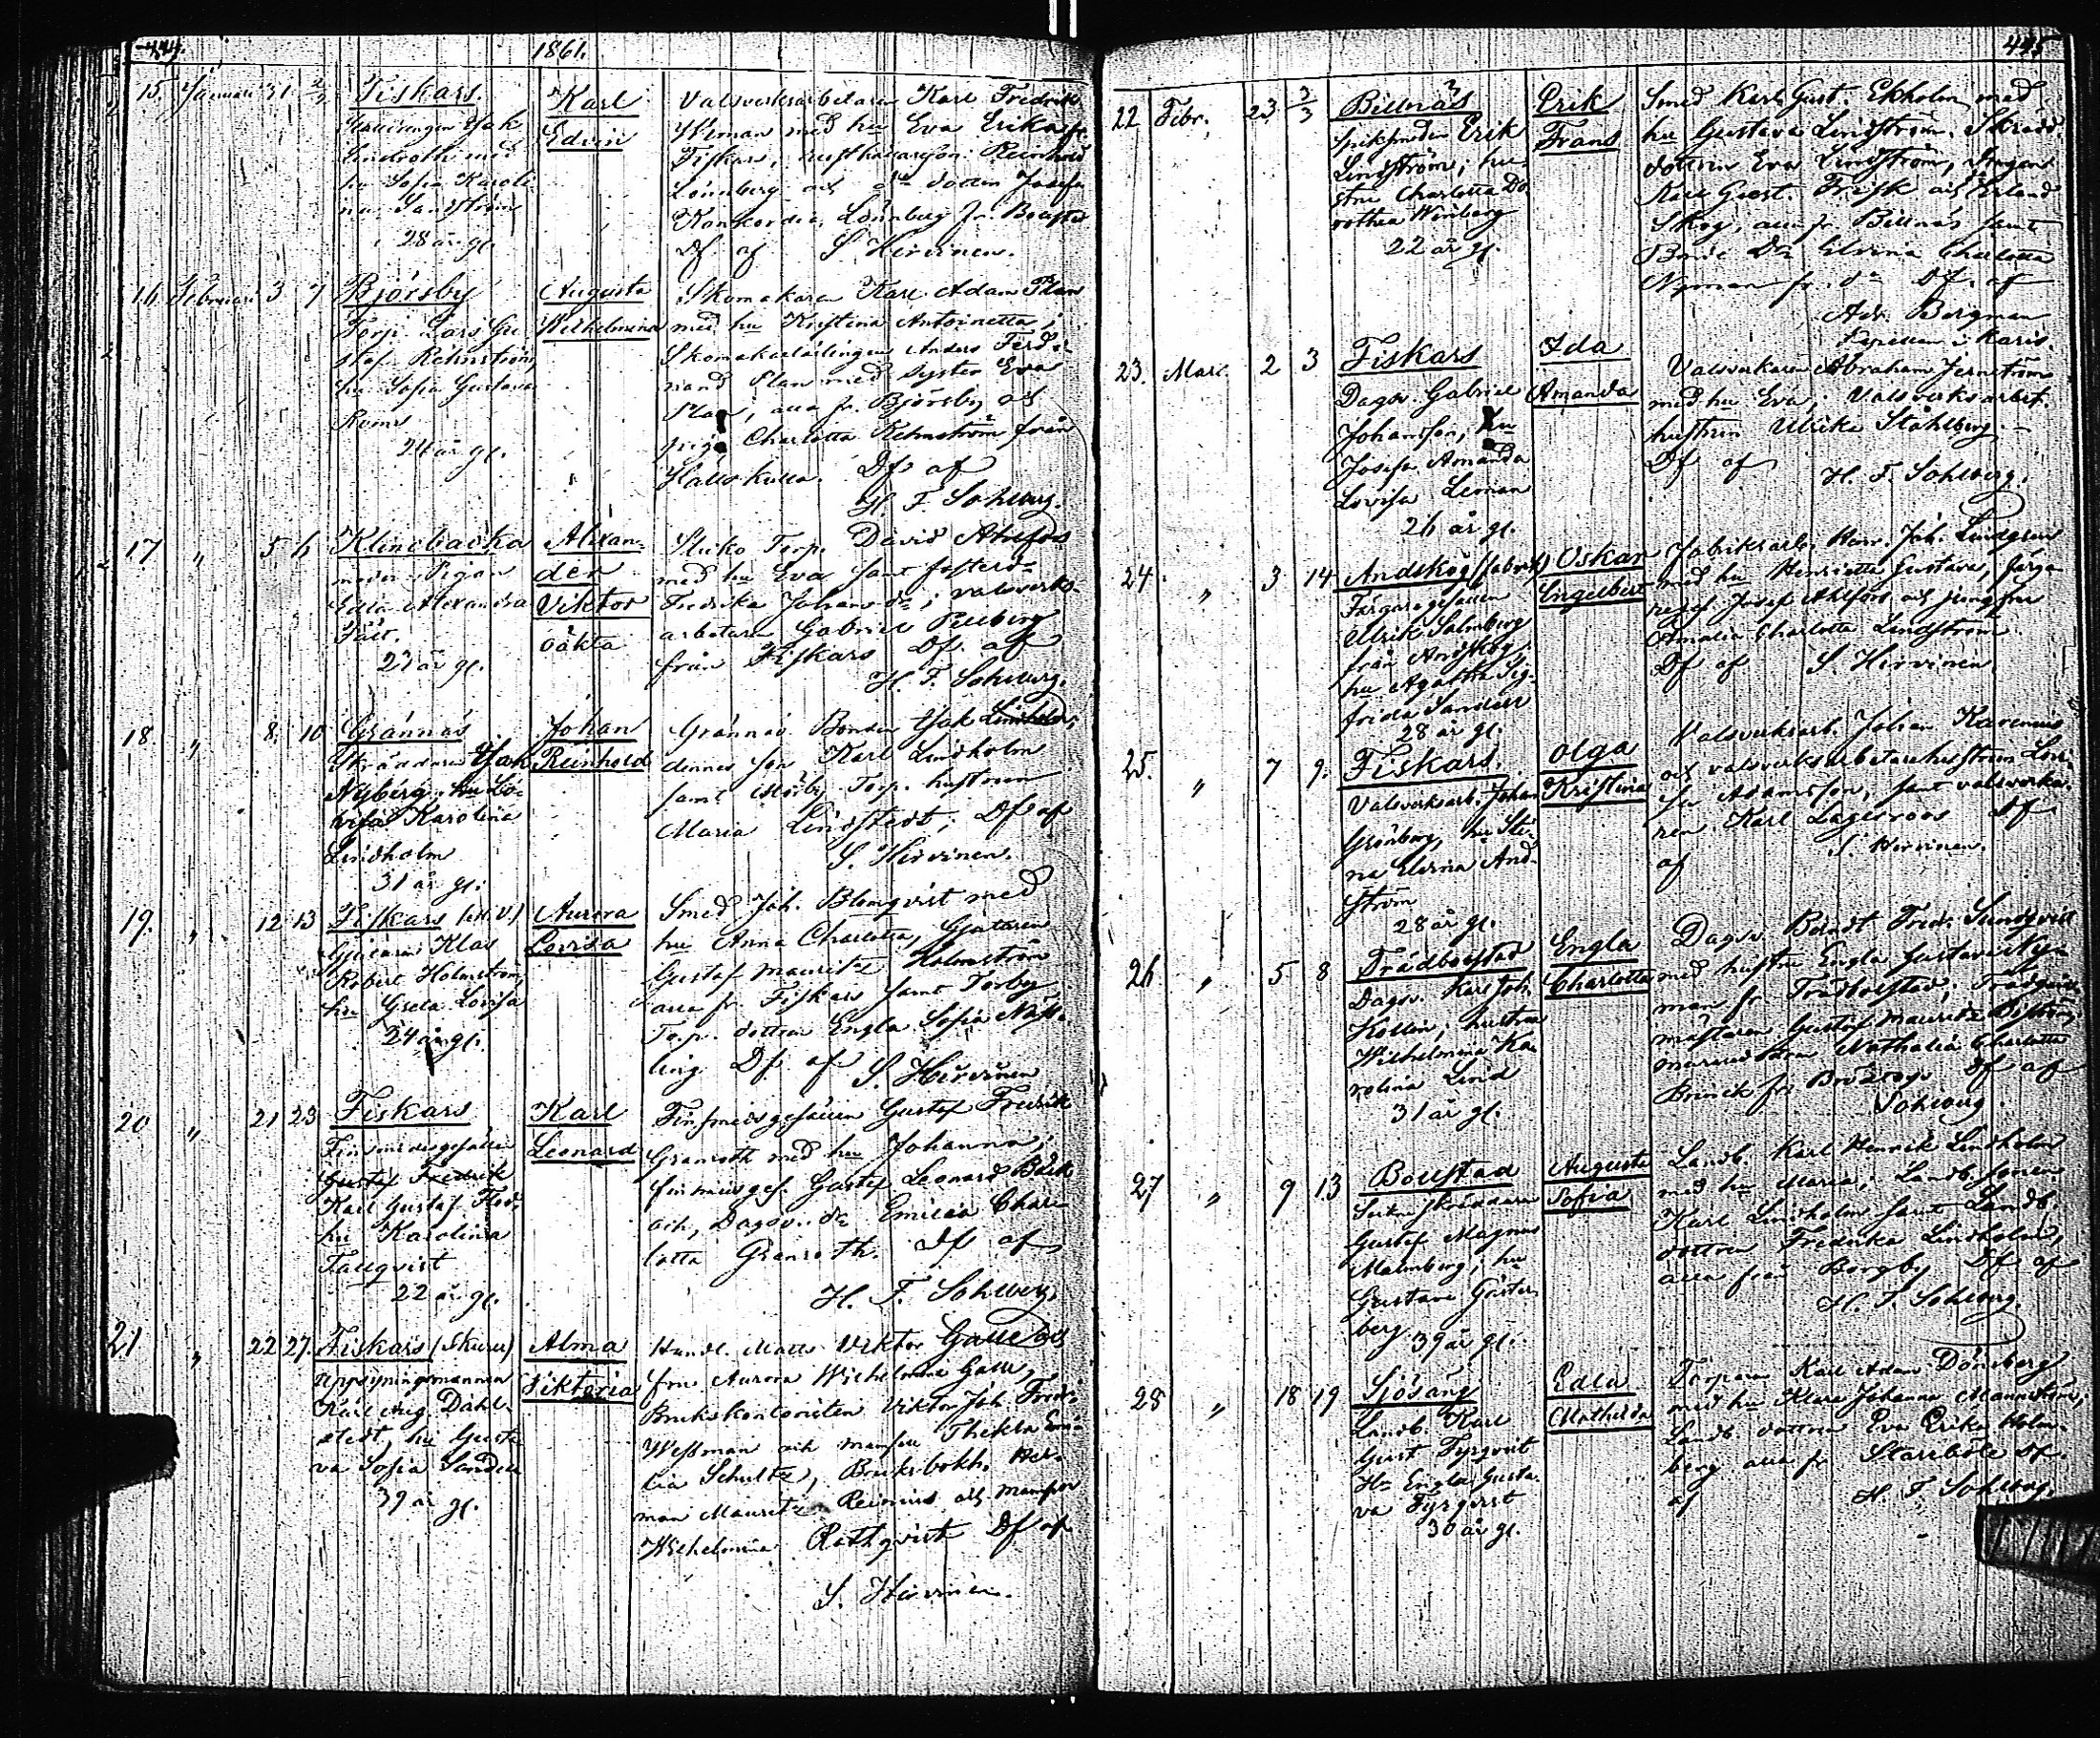 444.
1861.
15. Januari 31 2/3 Fiskars.
Isak
Lindroth med
hu Sofia Karoli-
na Sandström
28 år gl.
Karl
Edvin
Valsverksarbetaren Karl Fredrik
med hu Eva Erika fr.
Fiskars, Reinhold
Lönnberg och dottren Josefa
Konkordia Lönnberg fr.
Df af S. Hirvinen.
16. Februari 3 7 Björsby
Torp. Lars Gu-
staf Rehnström,
hu Sofia Gustava
år gl.
Augusta
Wilhelmina
Skomakaren Karl Adam Plan
med hu Kristina Antoinetta;
Skomakarlärlingen Anders Ferdi-
nand Plan med syster Eva
Plan, alla fr. Björsby och
pigan Charlotta Rehnström från
Df af
H. F. Sohlberg.
17 " 5 6 Klinkbacka
moder: Pigan
Edla Alexandra
Fält.
27 år gl.
Alexan-
der
Viktor
oäkta
Torp. David Ahlfors
med hu Eva samt
Fredrika Johans dr; valsverks-
arbetaren Gabriel
från Fiskars Df. af
H. F. Sohlberg.
18. " 8. 10 Grännäs
Skräddaren Isak
Nyberg, hu Lo-
visa Karolina
Lindholm
31 år gl.
Johan
Reinhold
Grännäs Bonden Isak Lindholm,
dennes son Karl Lindholm
samt Torp. hustrun
Maria Lindstedt; Df af
S. Hirvinen.
19. " 12 13 Fiskars
Gjutaren Klas
Robert Holmström,
hu Greta Lovisa
24 år gl.
Aurora
Lovisa
Smed Joh. Blomqvist med
hu Anna Charlotta, Gjutaren
Gustaf Mauritz Holmström
alla fr. Fiskars samt Torby
Torp. dottren Engla Sofia Näss-
ling Df af S. Hirvinen
20 " 21 23 Fiskars
Finsmedsgesällen
Gustaf Fredrik
Karl Gustaf
hu Karolina
Tallqvist
22 år gl.
Karl
Leonard
Finsmedsgesällen Gustaf Fredrik
Granroth med hu Johanna;
finsmedsges. Gustaf Leonard Bäck
och, Dagsv. dr Emilia Char-
lotta Granroth. Df af
H. F. Sohlberg.
21 " 22 27. Fiskars (Skuru)
Uppsyningsmannen
Karl Aug. Dahl-
stedt, hu Gusta-
va Sofia Sandell
39 år gl.
Alma
Viktoria
Handl. Matts Viktor Galle och
fru Aurora Wilhelmina Galle,
Brukskontoristen Viktor Joh. Fredr.
Wessman och mamsell Thekla Emi-
lia Schultz, Bruksbokh. Her-
man Mauritz Reinius och mamsell
Wilhelmina Rothqvist Df af
S. Hirvinen.
445
22 Febr. 23 3/3 Billnäs
Spiksmeden Erik
Lindström; hu-
stru Charlotta Do-
rothea Winberg
22 år gl.
Erik
Frans
Smed Karl Gust. Ekholm med
hu Gustava Lindström, Skrädd.
dottren Eva Lindström, drängen
Karl Gust. Frisk och Erland
Skog, alla fr. Billnäs samt
Bonde Dr Elvina Charlotta
Nyman fr. dr Df. af
Adr. Bergman
Kapellan i Karis.
23. Mars 2 3 Fiskars
Dagsv. Gabriel
Johansson, hu
Josefa Amanda
Lovisa Leman
26 år gl.
Ida
Amanda
Valsverkaren Abraham Jernström
med hu Eva; Valsverksarbet.
hustrun Ulrika Ståhlberg.
Df af H. F. Sohlberg.
24. " 3 14 Andskog (fabrik)
Färgaregesällen
Ulrik Salmberg
från Andskog;
hu Agatha Sig-
frida Sandell
28 år gl.
Oskar
Engelbert
Fabriksarb. Joh. Lindgren
med hu Henrietta Gustava, färga-
reges. Josef Ahlfors och jungfru
Amalia Charlotta Lindström
Df af S. Hirvinen
25. " 7 9. Fiskars.
Valsverksarb. Johan
Grönberg, hu Sti-
na Elvina And-
ström
28 år gl.
Olga
Kristina
Valsverksarb. Johan Karenius
och valsverksarbetarehustrun Lovi-
sa Adamsson, samt valsverka-
ren Karl Lagerroos Df
af S. Hirvinen.
26 " 5 8 Trädbolstad
Dagsv. Karl Joh.
Hollin; hustru
Wilhelmina Ka-
rolina Lind
31 år gl.
Engla
Charlotta
Dagsv. Berndt Fred. Sundqvist
med hustru Engla Gustava Ny-
man fr. Trädbolstad, Trädgårds-
mästaren Gustaf Mauritz
Nathalia Charlotta
Brinck fr. Df af
Sohlberg.
27 " 9 13 Bollstad
Skräddaren
Gustaf Magnus
Malmberg, hu
Gustava Gäster-
berg 39 år gl.
Augusta
Sofia
Landb. Karl Henrik Lindholm
med hu Maria; Landb. sonen
Karl Lindholm samt Landb.
dottren Fredrika Lindholm,
alla från Borgby Df af
H. F. Sohlberg.
28 " 18 19 Sjösäng
Landb. Karl
Gust Fyrqvist
Hu Engla Gusta-
va Fyrqvist
30 år gl.
Edla
Mathilda
Torparen Karl Adam Dönsberg
med hu Klara Johanna Mannström,
Landb. dottren Eva Erika Holm-
berg alla fr. Starrböle Df.
af H. F. Sohlberg.